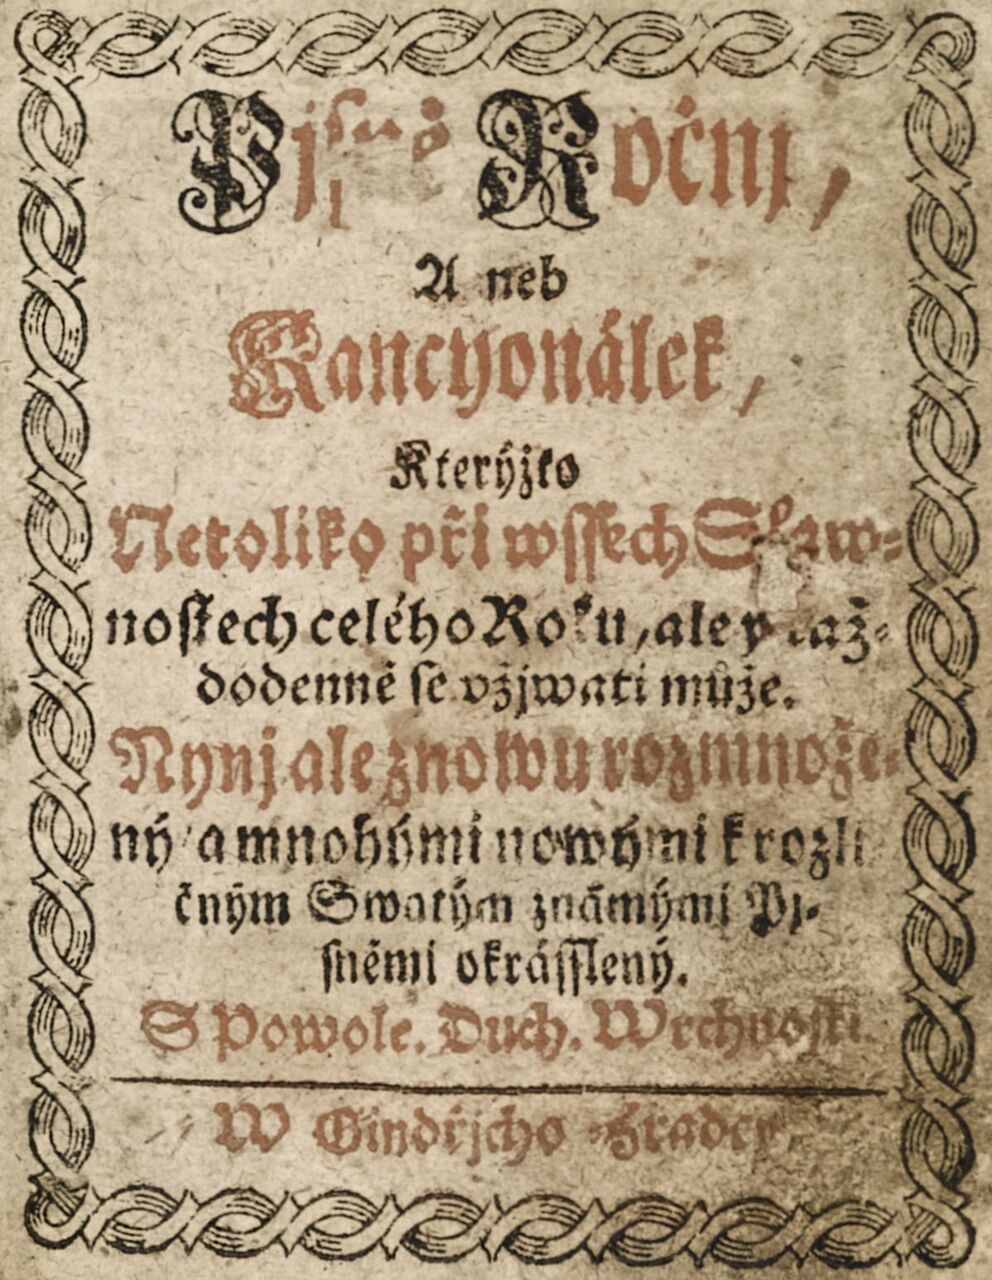 Pjsně Ročnj,
A neb
Kancyonálek,
Kterýžko
Netoliko při wssech Slaw-
nostech celého Roku, ale y každ-
dodenně se vžjwati může.
Nynj ale znowu rozmnože-
ný / a mnohými nowými k rozli
čným Swatým známými Pj-
sněmi okrásslený.
S Powole. Duch. Wrchnosti.
W Gindřjcho-Hradcy.